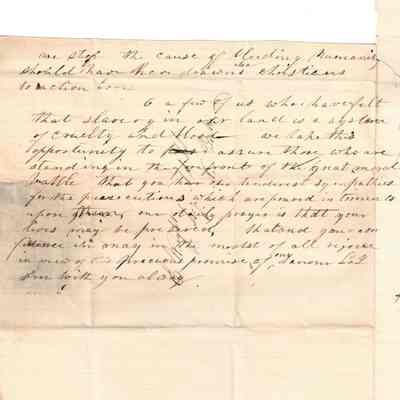 one step the cause of bleeding humanity
should have been drawn christians
to action
a few of us who have felt
that slavery in our land is a system
of cruelty and blood we take this
opportunity to assure those who are
standing in the forefront of the great moral
battle that you have our tenderest sympathies
for the persecutions which are poured in torrents
upon our daily prayer is that your
lives may be preserved that and your con
fidence in may in the midst of all rejoice
in view of the precious promise of my Saviour Lo I
am with you alway